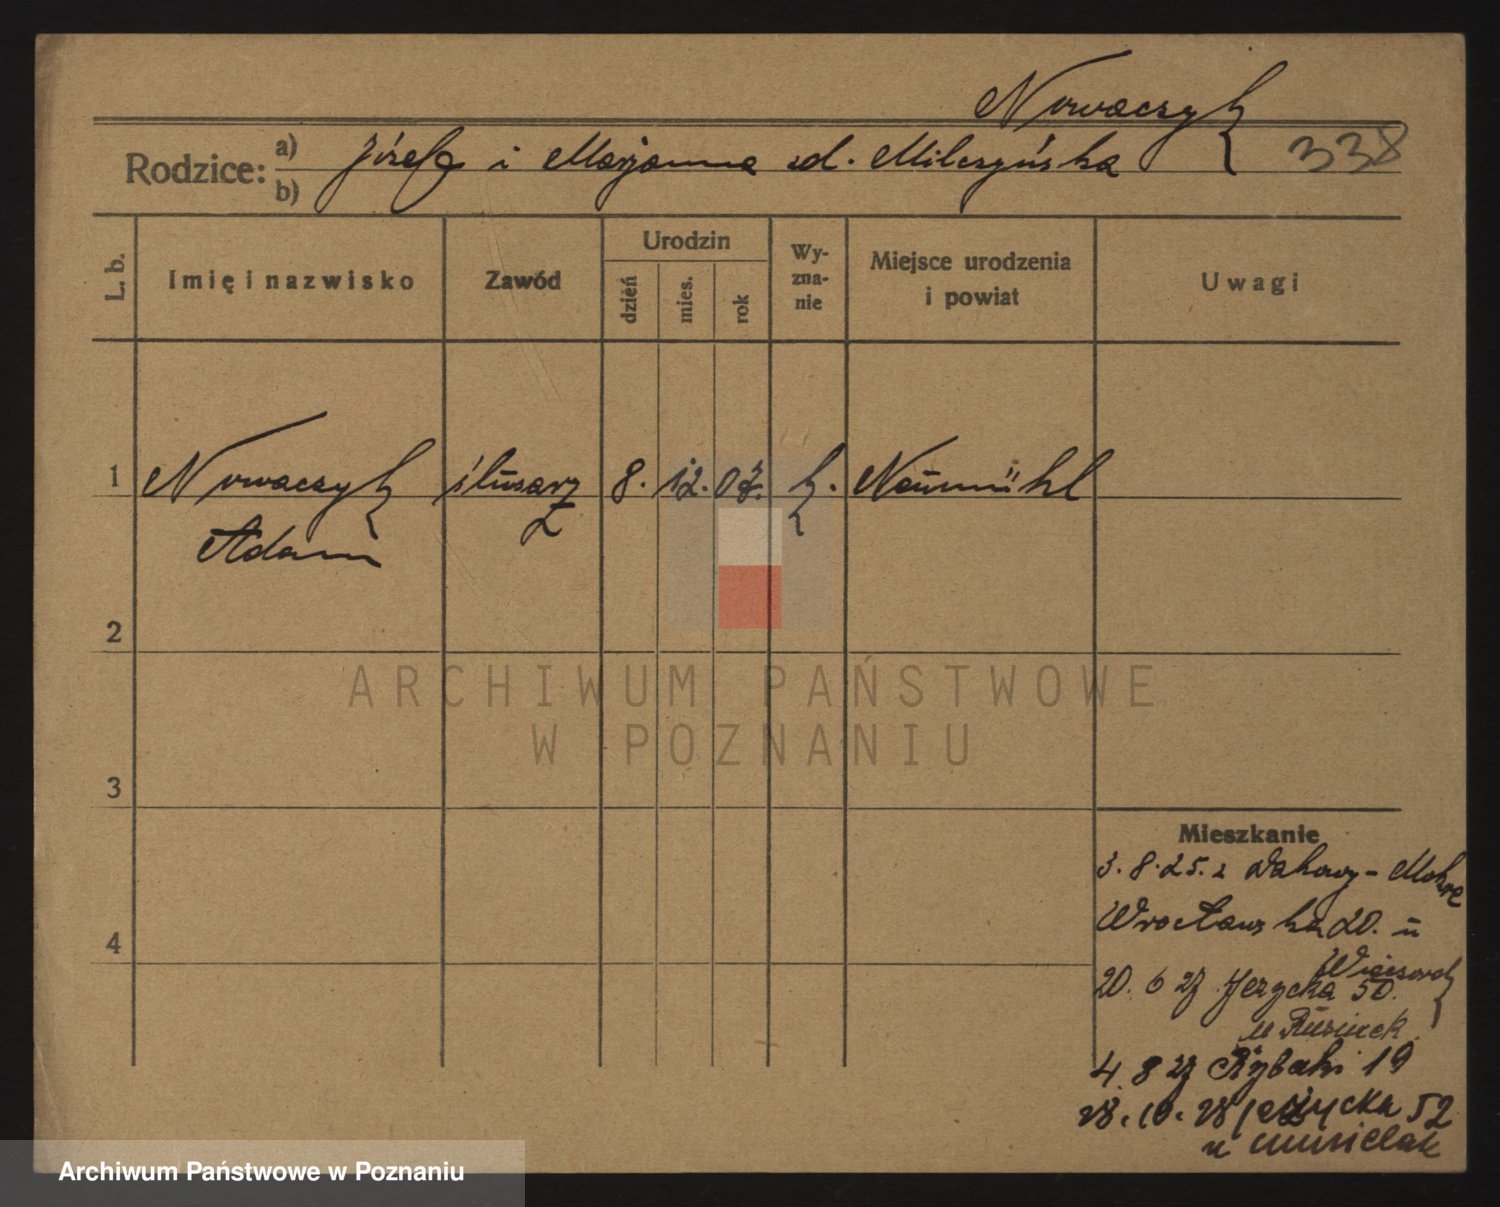 Nowaczyk
338
Rodzice: a) Józefa i Marjanna zd. Milczyńska
b)
L. b. Imię i nazwisko Zawód Urodzin dzień mies. rok Wyznanie Miejsce urodzenia i powiat Uwagi
1 Nowaczyk ślusarz 8. 12. 07. k. Neumühl
Adam
2
ARCHIWUM PAŃSTWOWE
W POZNANIU
3
Mieszkanie
3. 8. 25. z Dakowy - Mokre
4 Wrocławska 20. u
20. 6 27 Jeżycka 50.
u
4. 8 27 Rybaki 19
28. 10. 28 Jeżycka 52
u Musielak
Archiwum Państwowe w Poznaniu